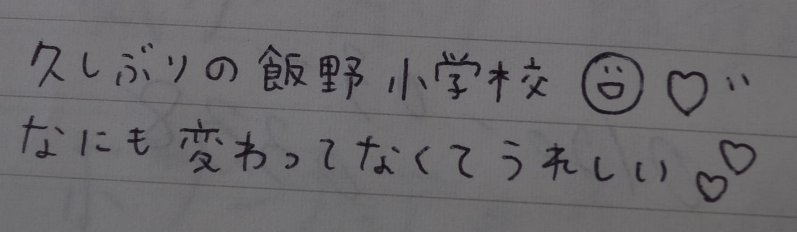 久しぶりの飯野小学校 ☺ ♡"
なにも変わってなくてうれしい ♡♡